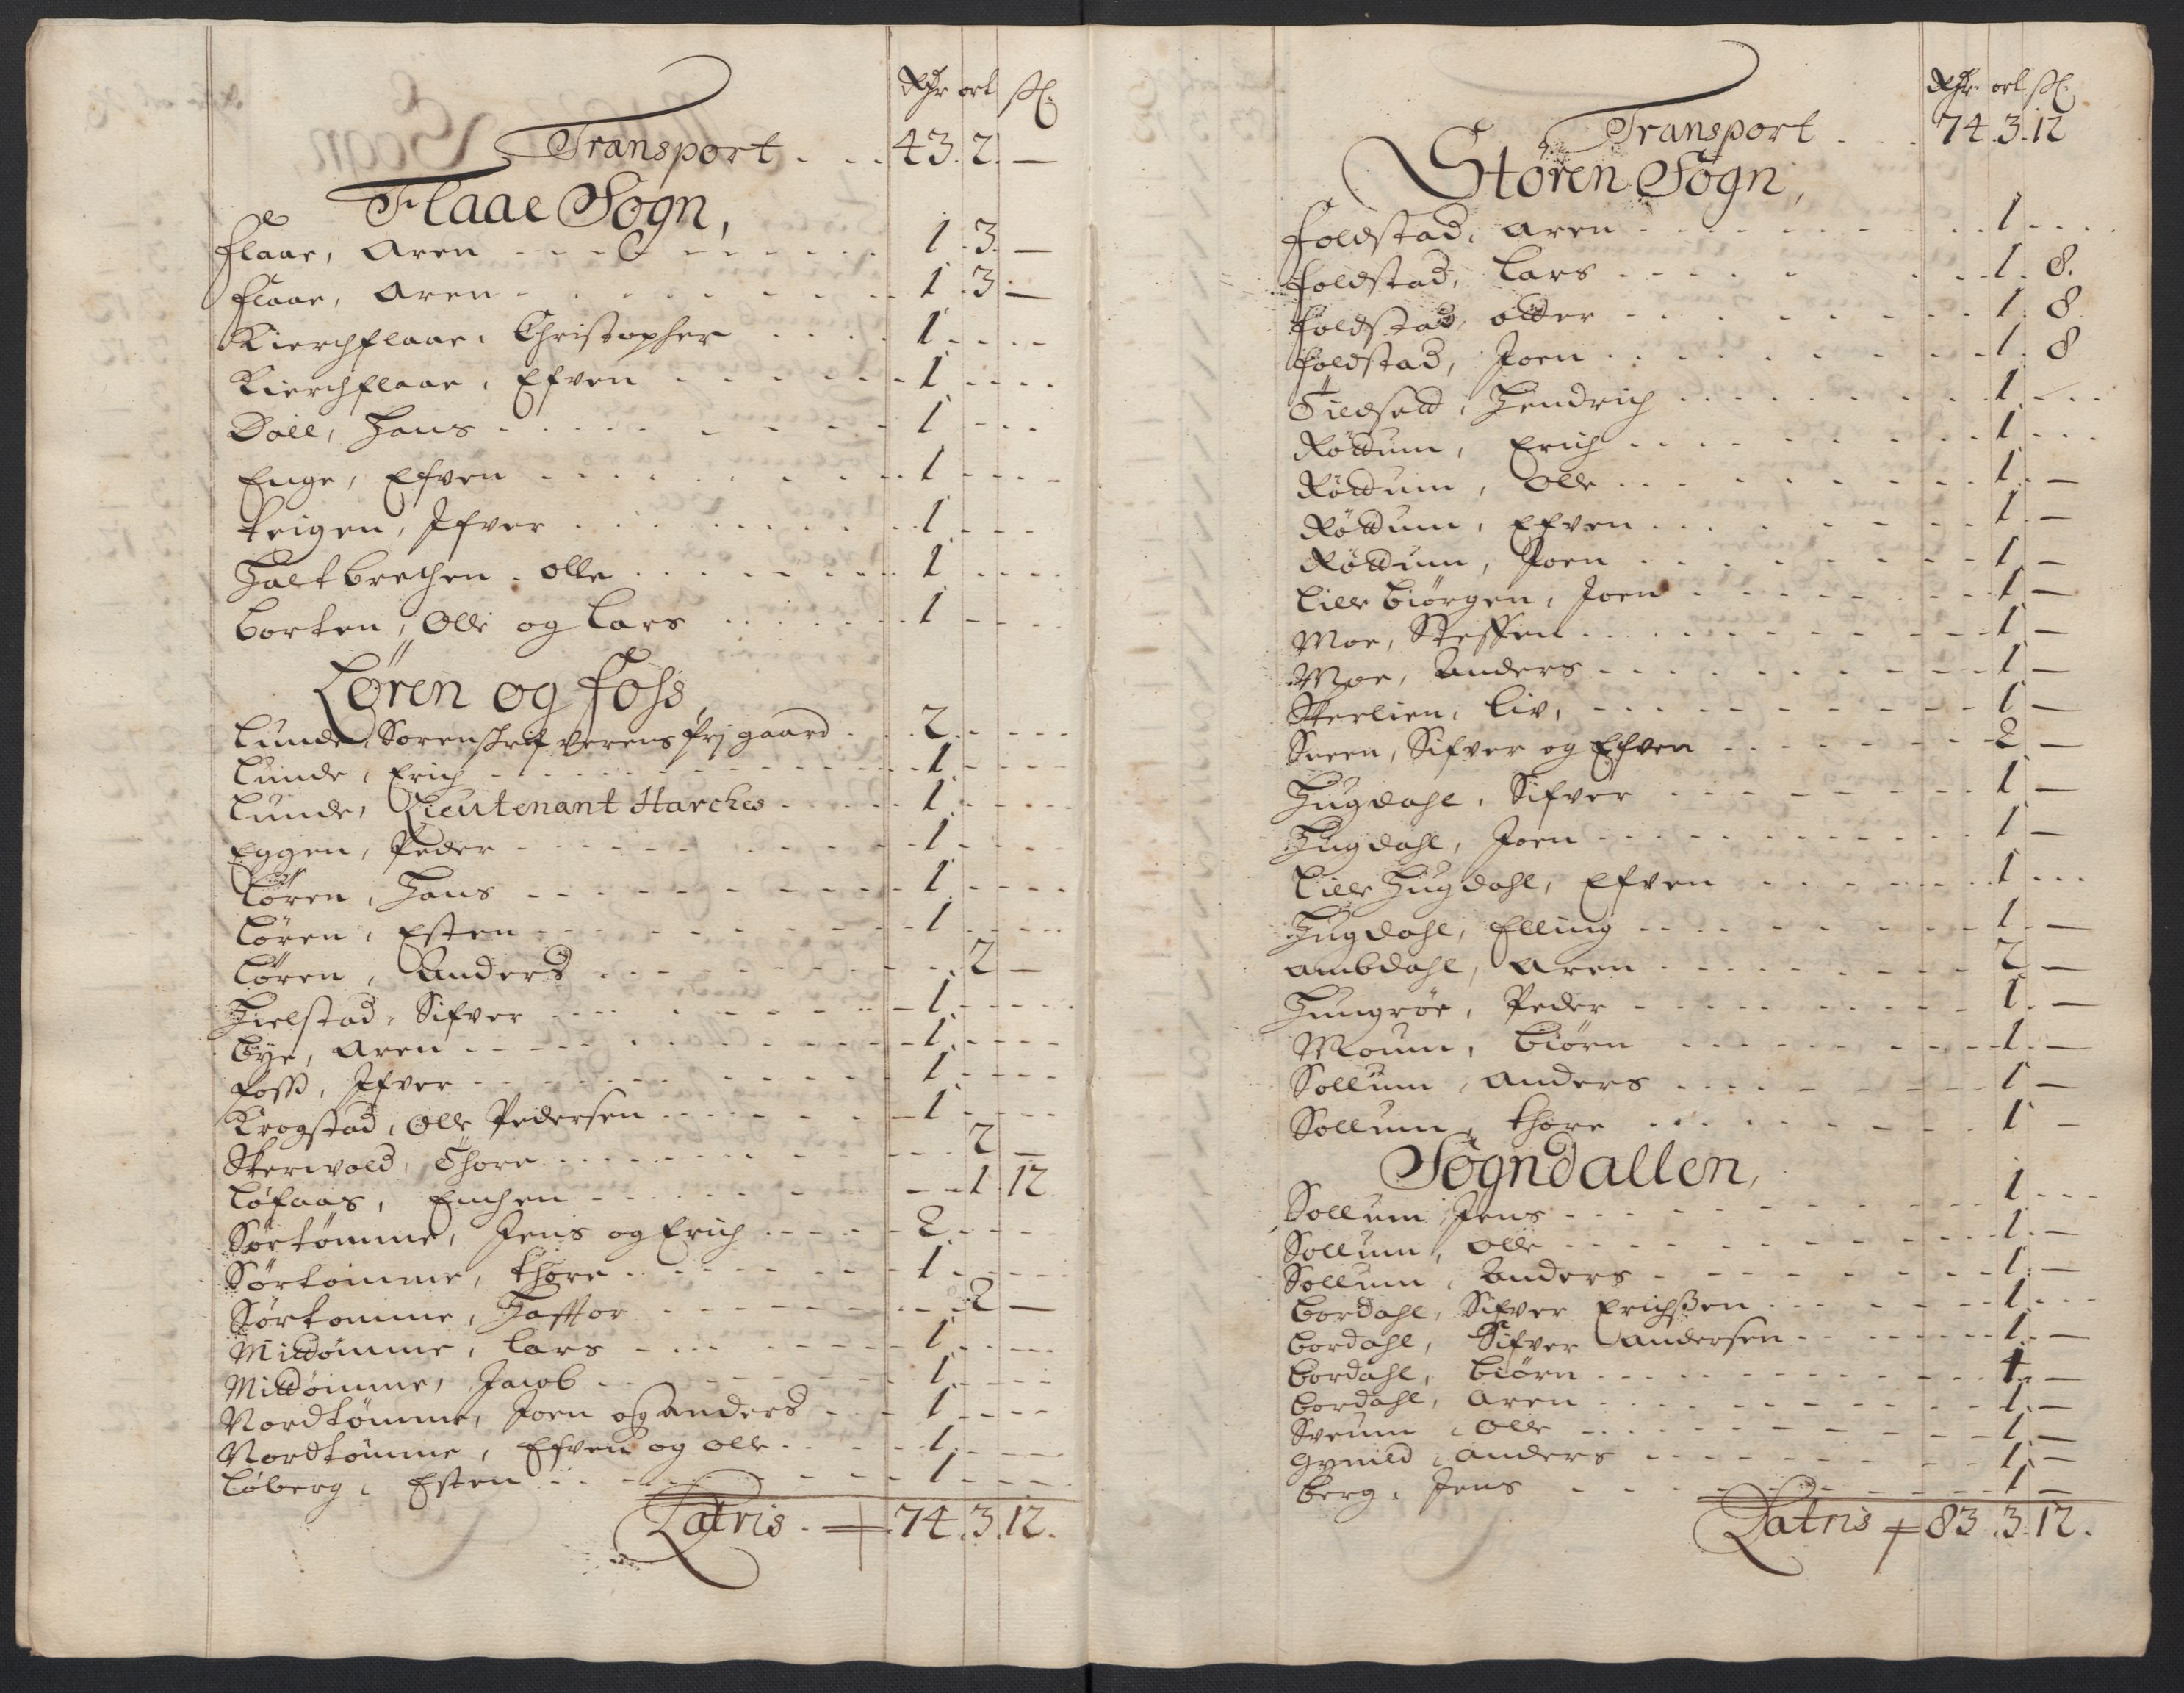 Rdr ort sk:
Transport . . . 43. 2. —
Flaae Sogn,
Flaae, Aren 1. 3. —
Flaae, Aren 1. 3. —
Kierchflaae, Christopher 1
Kierchflaae, Efven 1
Dall, Hans 1
Enge, Efven 1
Teigen, Ifver 1
Haltbrechen, Olle 1
Borten, Olle og Lars 1
Løren og Foss
Lunde, Sorenskrifverens frj gaard 2
Lunde, Erich 1
Lunde, Lieutenant Harches 1
Eggen, Peder 1
Løren, Hans 1
Løren, Esten 1
Løren, Anders 2 —
Hielstad, Sifver 1
Bye, Aren 1
Foss, Ifver 1
Krogstad, Olle Pedersen 1
Skerwold, Thore 2 —
Løfaas, Enchen 1 12
Sørtømme, Jens og Erich 2
Sørtømme, Thore 1
Sørtomme, Haftor 2 —
Mittømme, Lars 1
Mittømme, Jacob 1
Nordtømme, Joen og Anders 1
Nordtømme, Efven og Olle 1
Løberg, Esten 1
Latris . 74. 3. 12.
Rdr ort sk:
Transport . . 74. 3. 12
Støren Sogn,
Foldstad, Aren 1
Foldstad, Lars 1. 8.
Foldstad, Otter 1. 8
Foldstad, Joen 1. 8
Fildsett, Hendrich 1
Røttum, Erich 1
Røttum, Olle 1. —
Røttum, Efven 1. —
Røttum, Joen 1 —
Lille Biørgen, Joen 1 —
Moe, Steffen 1 —
Moe, Anders 1 —
Sterlien, Liv, 1 —
Sneen, Sifver og Efven 2 —
Hugdahl, Sifver 1 —
Hugdahl, Joen 1 —
Lille Hugdahl, Efven 1
Hugdahl, Elling 1. —
Ambdahl, Aren 2 —
Hungrøe, Peder 1. —
Moum, Biørn 1. —
Sollum, Anders 1 —
Sollum, Thore 1 —
Sogndallen,
Sollum Jens 1
Sollum, Olle 1. —
Sollum, Anders 1. —
Bordahl, Sifver Erichsen 1
Bordahl, Sifver Andersen 1. —
Bordahl, Biørn 1. —
Bordahl, Aren 1. —
Sveum, Olle 1. —
Gynild, Anders 1. —
Berg, Jens 1 —
Latris 83. 3. 12.